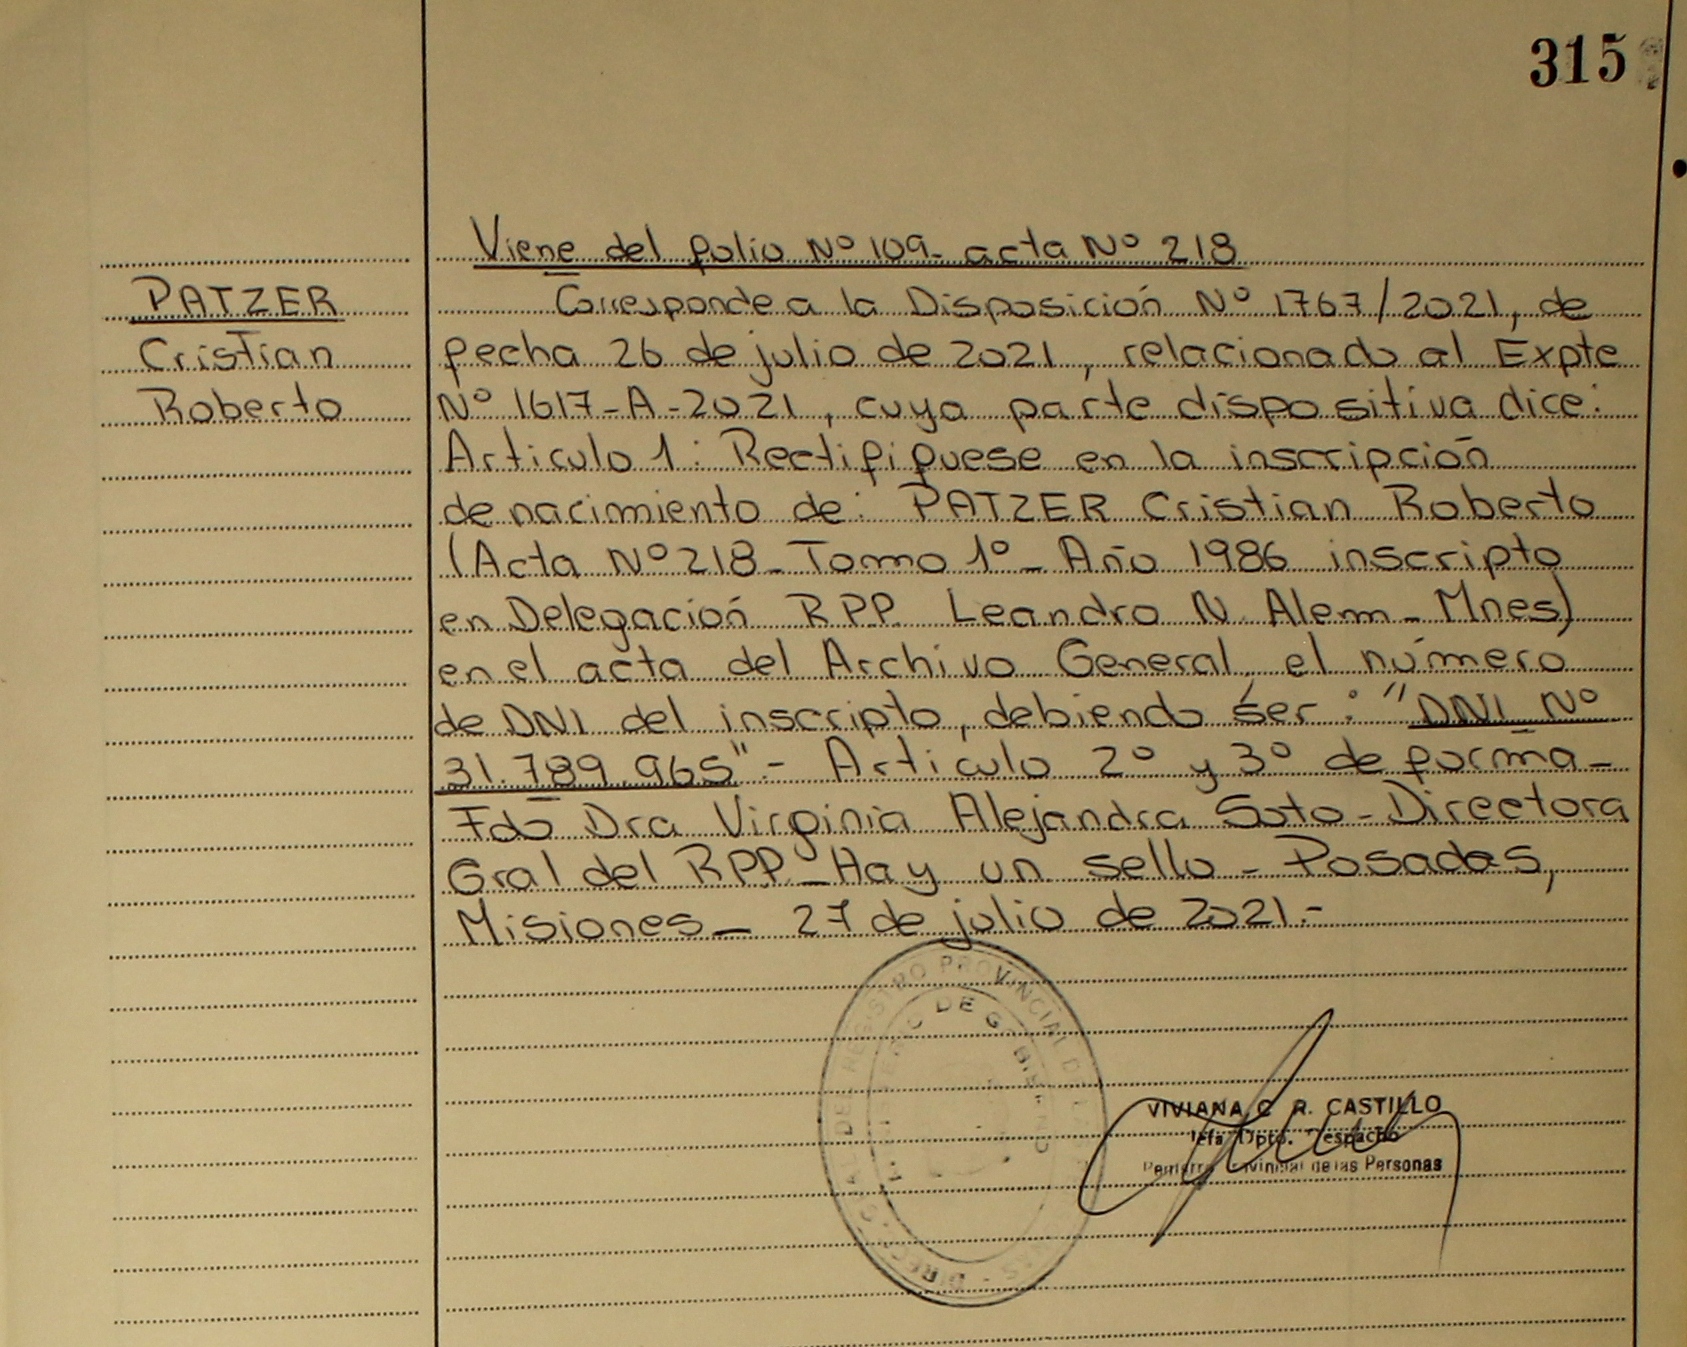 315
Viene del folio Nº 109- acta Nº 218
PATZER
Cristian
Roberto
Corresponde a la Disposición Nº 1767/2021, de
fecha 26 de julio de 2021, relacionado al Expte
Nº 1617-A-2021, cuya parte dispositiva dice:
Articulo 1: Rectifiquese en la inscripción
de nacimiento de: PATZER Cristian Roberto
(Acta Nº 218_ Tomo 1º_ Año 1986 inscripto
en Delegación RPP. Leandro N. Alem_ Mnes)
en el acta del Archivo General, el número
de DNI del inscripto, debiendo ser: "DNI Nº
31.789.965".- Articulo 2º y 3º de forma-
Fdo Dra Virginia Alejandra Soto-Directora
Gral del RPP_Hay un sello - Posadas,
Misiones_ 27 de julio de 2021.-
REGISTRO PROVINCIAL DE
DE GOBIERNO
VIVIANA C. R. CASTILLO
Jefa Dpto. Despacho
Provincial de las Personas